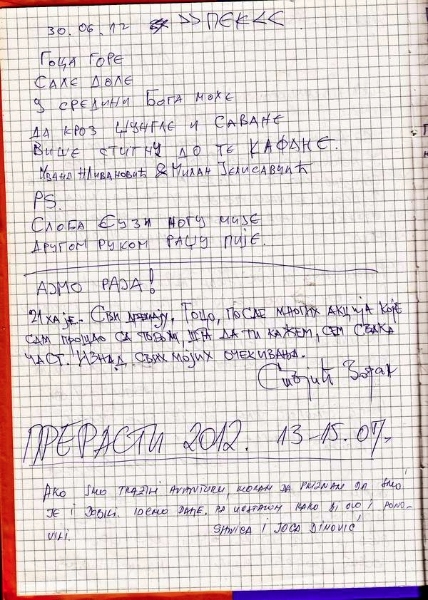 30.06.12 >>ПЕК<<
Гоца горе
Сале доле
у средини Бога може
да кроз џунгле и саване
више стигну до те кафане.
Ивана Живановић & Милан Јелисавчић
PS.
Слоба Сузи ногу мије
другом руком рашу пије.
Ајмо раја!
21 хаје. Сви дремају. Гоцо, после многих акција које
сам прошао са тобом, шта да ти кажем, сем свака
част. Изнад свих мојих очекивања.
Зоран
ПРЕРАСТИ 2012. 13-15.07.
Ako smo tražili avanturu, moram da priznam da smo
je i dobili. Idemo dalje. Da ustanem kako bi ovo i pono-
vili. Slavica i Joca Dinović